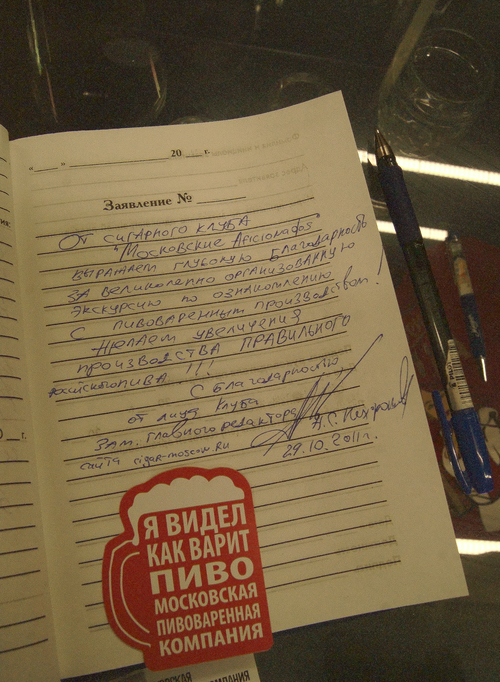 "___" ____________ 20 ___ г.
Заявление № ______
От сигарного клуба
"Московские Aficionados"
выражаем глубокую благодарность
за великолепно организованную
экскурсию по ознакомлению
с пивоваренным производством!
Желаем увеличения
производства правильного
пива !!!
С благодарностью
от лица клуба
Зам. главного редактора
сайта cigar-moscow.ru
А.С.
29.10.2011г.
Я ВИДЕЛ
КАК ВАРИТ
ПИВО
МОСКОВСКАЯ
ПИВОВАРЕННАЯ
КОМПАНИЯ